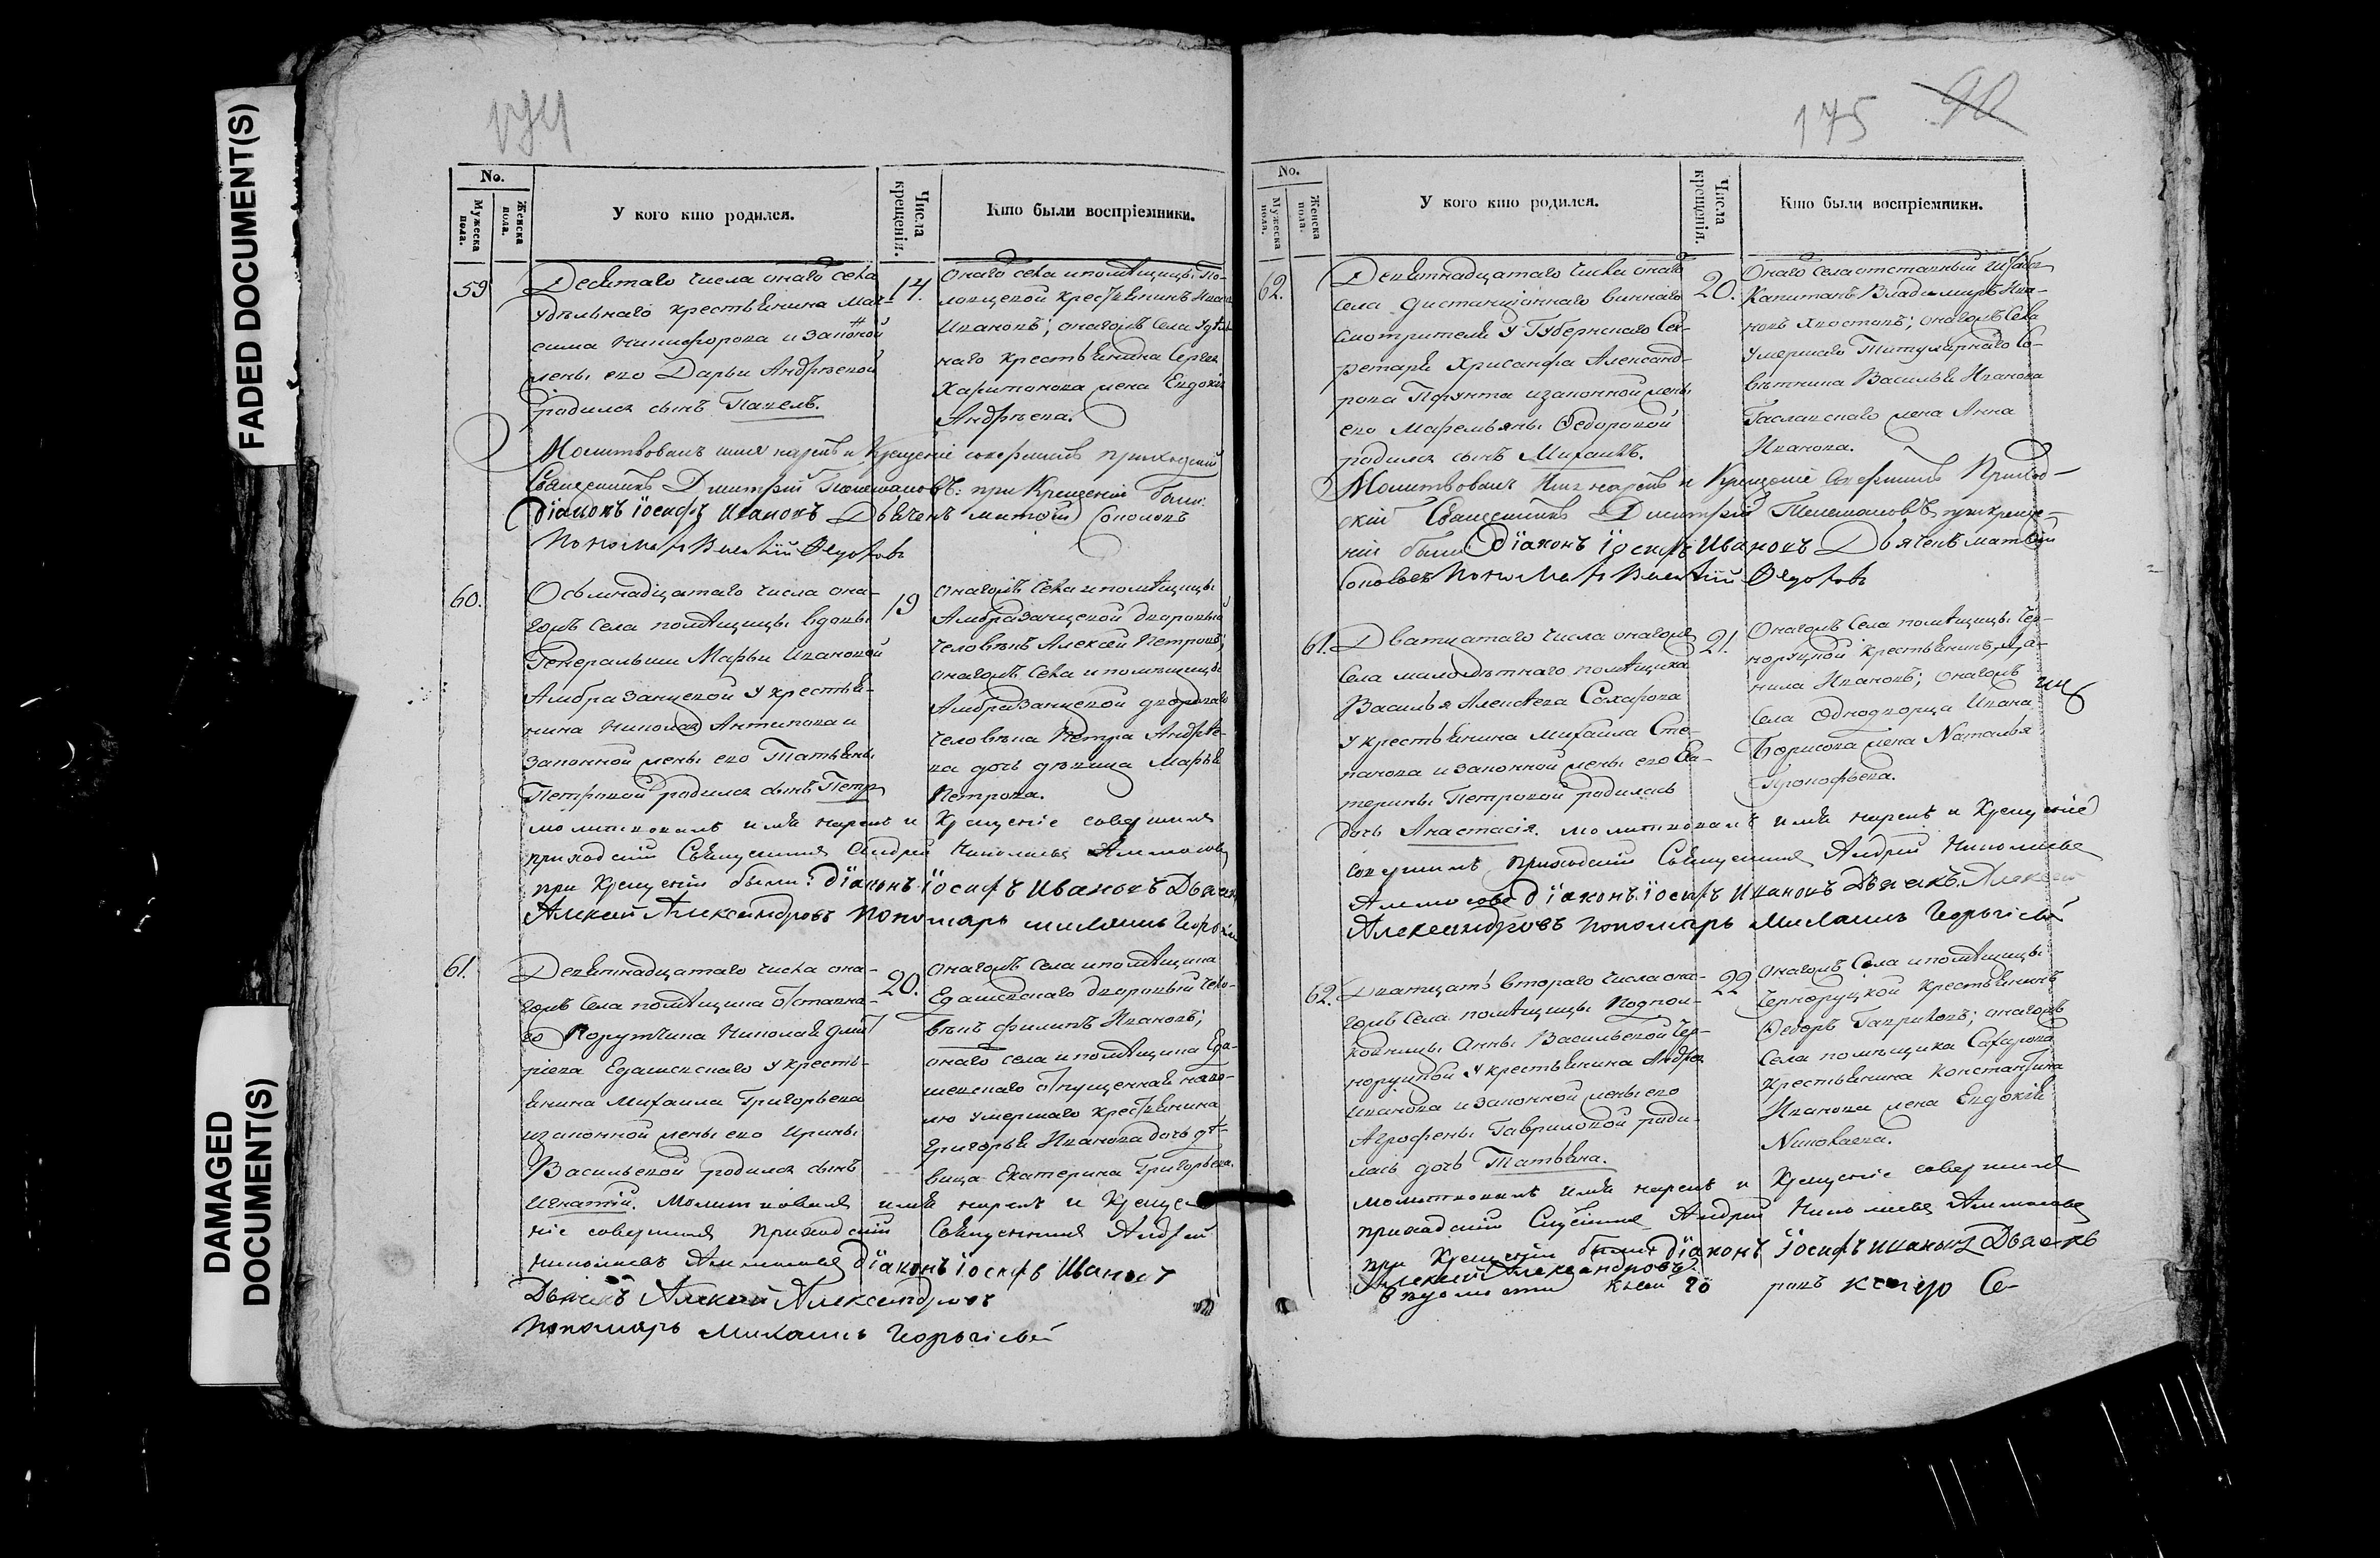 FADED DOCUMENT(S)
DAMAGED
DOCUMENT(S)
174
No.
Мужеска пола.
Женска пола.
У кого кто родился.
Числа крещенія.
Кто были воспріемники.
59
Десятаго числа онаго села
удѣльнаго крестьянина Мак-
сима Никифорова и законой
жены его Дарьи Андрѣевой
родился сынъ Павелъ.
14.
Онаго села и помѣщицы По-
крестьянинъ Иванъ
Ивановъ; онагожъ села удѣль
наго крестьянина Сергея
Харитонова жена Евдокія
Андрѣева.
Молитвовалъ имя нарекъ и Крещеніе совершилъ приходскій
Священникъ Дмитрій Телемаковъ: при Крещеніи были
Діаконъ Іосифъ Ивановъ Дьячекъ Матвѣй Соколовъ
Пономарь Василій Федоровъ
60.
Осьмнадцатаго числа она-
гожъ села помѣщицы вдовы
Генеральши Марьи Ивановой
Амбразанцевой у крестья-
нина Николая Антипова и
законной жены его Татьяны
Петровой родился сынъ Петръ
19
онагожъ села и помѣщицы
Амбразанцевой дворовый
человѣкъ Алексѣй Петровъ;
онагожъ села и помѣщицы
Амбразанцевой двороваго
человѣка Петра Андрѣе-
ва дочь дѣвица Марья
Петрова.
молитвовалъ имя нарекъ и Крещеніе совершилъ
приходскій Священникъ Андрей Николаевъ
при Крещеніи были: Діаконъ Іосифъ Ивановъ Дьячекъ
Алексей Александровъ Пономарь Михаилъ Георгіевъ
61.
Девятнадцатаго числа она-
гожъ села помѣщика отставна-
го Порутчика Николая Дмит
ріева Едашевскаго у кресть-
янина Михаила Григорьева
и законной жены его Ирины
Васильевой родился сынъ
Игнатій. Молитвовалъ имя нарекъ и Креще-
ніе совершилъ приходскій Священникъ Андрей
Николаевъ Діаконъ Іосифъ Ивановъ
Дьячекъ Алексей Александровъ
Пономарь Михаилъ Георгіевъ
20.
онагожъ села и помѣщика
Едашевскаго дворовый чело-
вѣкъ Филипъ Ивановъ;
онаго села и помѣщика Еда-
шевскаго отпущенная на во-
лю умершаго крестьянина
Григорья Иванова дочь дѣ-
вица Екатерина Григорьева.
175
90
No.
Мужеска пола.
Женска пола.
У кого кто родился.
Числа крещенія.
Кто были воспріемники.
62.
Девятнадцатаго числа онаго
села дистанціоннаго виннаго
смотрителя у Губернскаго Сек-
ретаря Хрисанфа Александ-
рова и законной жены
его Маремьяны Федоровой
родился сынъ Михаилъ.
20.
Онаго села отставный Штабсъ
Капитанъ Владимиръ Ива-
новъ Хвостовъ; онагожъ села
умершаго Титулярнаго Со-
вѣтника Василья Иванова
жена Анна
Иванова.
Молитвовалъ Имя нарекъ и Крещеніе Совершилъ Приход-
скій Священникъ Дмитрій Телемаковъ при креще-
ніи были Діаконъ Іосифъ Ивановъ Дьячекъ Матвей
Соколовъ Пономарь Василій Федоровъ
61.
Дватцатаго числа онагожъ
села малолѣтнаго помѣщика
Василья Алексѣева Сахарова
у крестьянина Михаила Сте-
панова и законной жены его Ека-
терины Петровой родилась
дочь Анастасія. молитвовалъ имя нарекъ и Крещеніе
совершилъ приходскій Священникъ Андрей Николаевъ
Діаконъ Іосифъ Ивановъ Дьячекъ Алексей
Александровъ Пономарь Михаилъ Георгіевъ
21.
Онагожъ села помѣщицы Чер-
норуцкой крестьянинъ Да-
нила Ивановъ; онагожъ
села однодворца Ивана
Борисова жена Наталья
Прокофьева.
62.
Дватцать втораго числа она-
гожъ села помѣщицы Подпол-
ковницы Анны Васильевой Чер-
норуцкой у крестьянина Андрея
Иванова и законной жены его
Агрофены Гавриловой роди-
лась дочь Татьяна.
22
онагожъ села и помѣщицы
Черноруцкой крестьянинъ
Федоръ Гавриловъ; онагожъ
села помѣщика Сахарова
крестьянина Константина
Иванова жена Евдокія
Николаева.
молитвовалъ имя нарекъ и Крещеніе совершилъ
приходскій Священникъ Андрей Николаевъ
при Крещеніи были: Діаконъ Іосифъ Ивановъ Дьячекъ
Алексей Александровъ